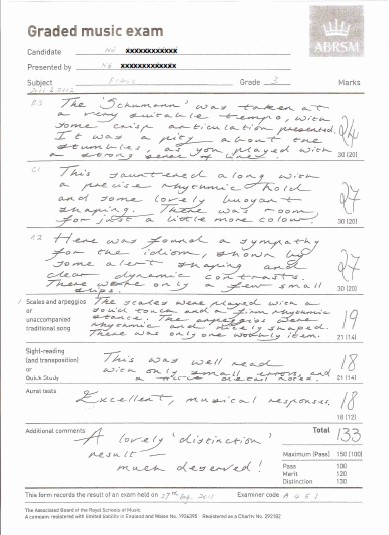 Graded music exam
ABRSM
Candidate Ng xxxxxxxxxxxx
Presented by Ng xxxxxxxxxxxx
Subject Piano Grade 3 Marks
B3 The 'Schumann' was taken at
a very suitable tempo, with
some crisp articulation presented.
It was a pity about the
stumbles, as you played with
a strong sense of line. 24
30 (20)
C1 This sauntered along with
a precise rhythmic hold
and some lovely buoyant
shaping. There was room
for just a little more colour. 27
30 (20)
A2 Here was found a sympathy
for the idiom, shown by
some alert shaping and
clear dynamic contrasts.
There were only a few small
slips. 27
30 (20)
Scales and arpeggios
or
unaccompanied
traditional song
The scales were played with a
solid touch and a firm rhythmic
stance. The arpeggios were
rhythmic and nicely shaped.
There was only one wobbly item. 19
21 (14)
Sight-reading
(and transposition)
or
Quick Study
This was well read
with only small errors, and
a notes. 18
21 (14)
Aural tests
Excellent, musical responses. 18
18 (12)
Additional comments
A lovely 'distinction'
result –
much deserved!
Total 133
Maximum (Pass) 150 (100)
Pass 100
Merit 120
Distinction 130
This form records the result of an exam held on 27th Aug. Examiner code A
The Associated Board of the Royal Schools of Music
A company registered with limited liability in England and Wales No. 1926395 · Registered as a Charity No. 292182